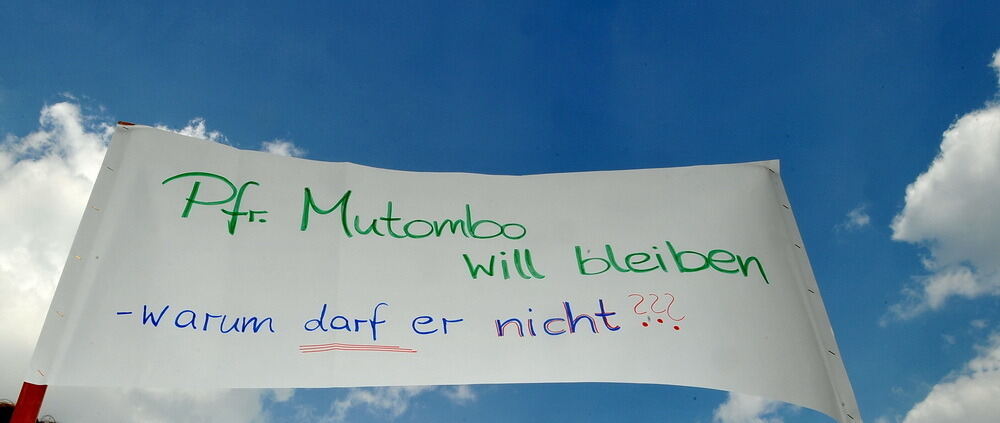 Pfr. Mutombo
will bleiben
-warum darf er nicht???